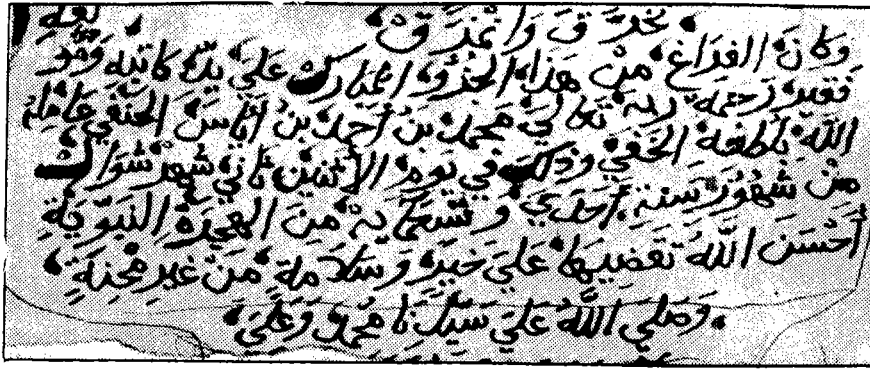 تخرق وانمزق
وكان الفراغ من هذا الجزو المبارك علي يد كاتبه
فقير رحمة ربه تعالي محمد بن أحمد بن أناس الحنفي عامله
الله بلطفه الخفي وذلك في يوم الاثنين ثاني شهر شوال
من شهور سنة أحدي وتسعماية من الهجرة النبوية
أحسن الله تقضيها علي خير وسلامة من غير محنة
وصلي الله علي سيدنا محمد وعلي